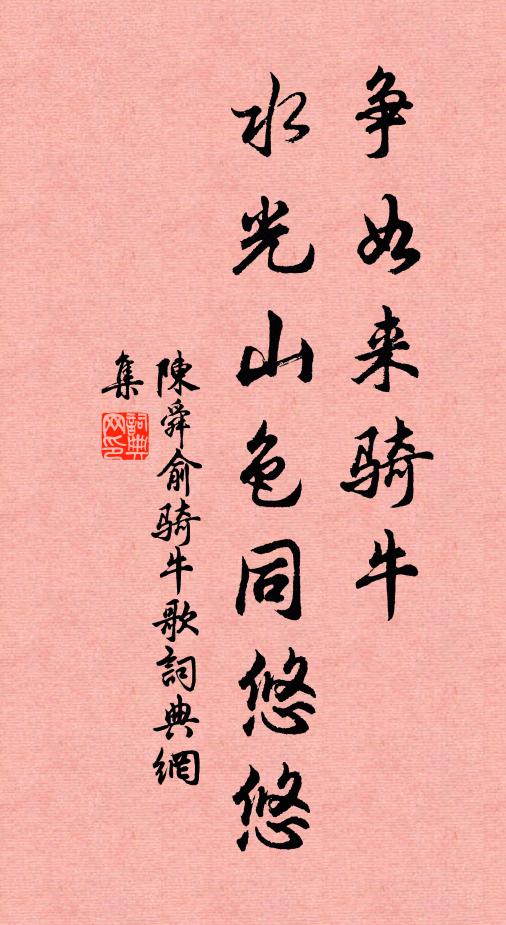 争如来骑牛
水光山色同悠悠
陳舜俞骑牛歌詞典網
集
詞典
网印